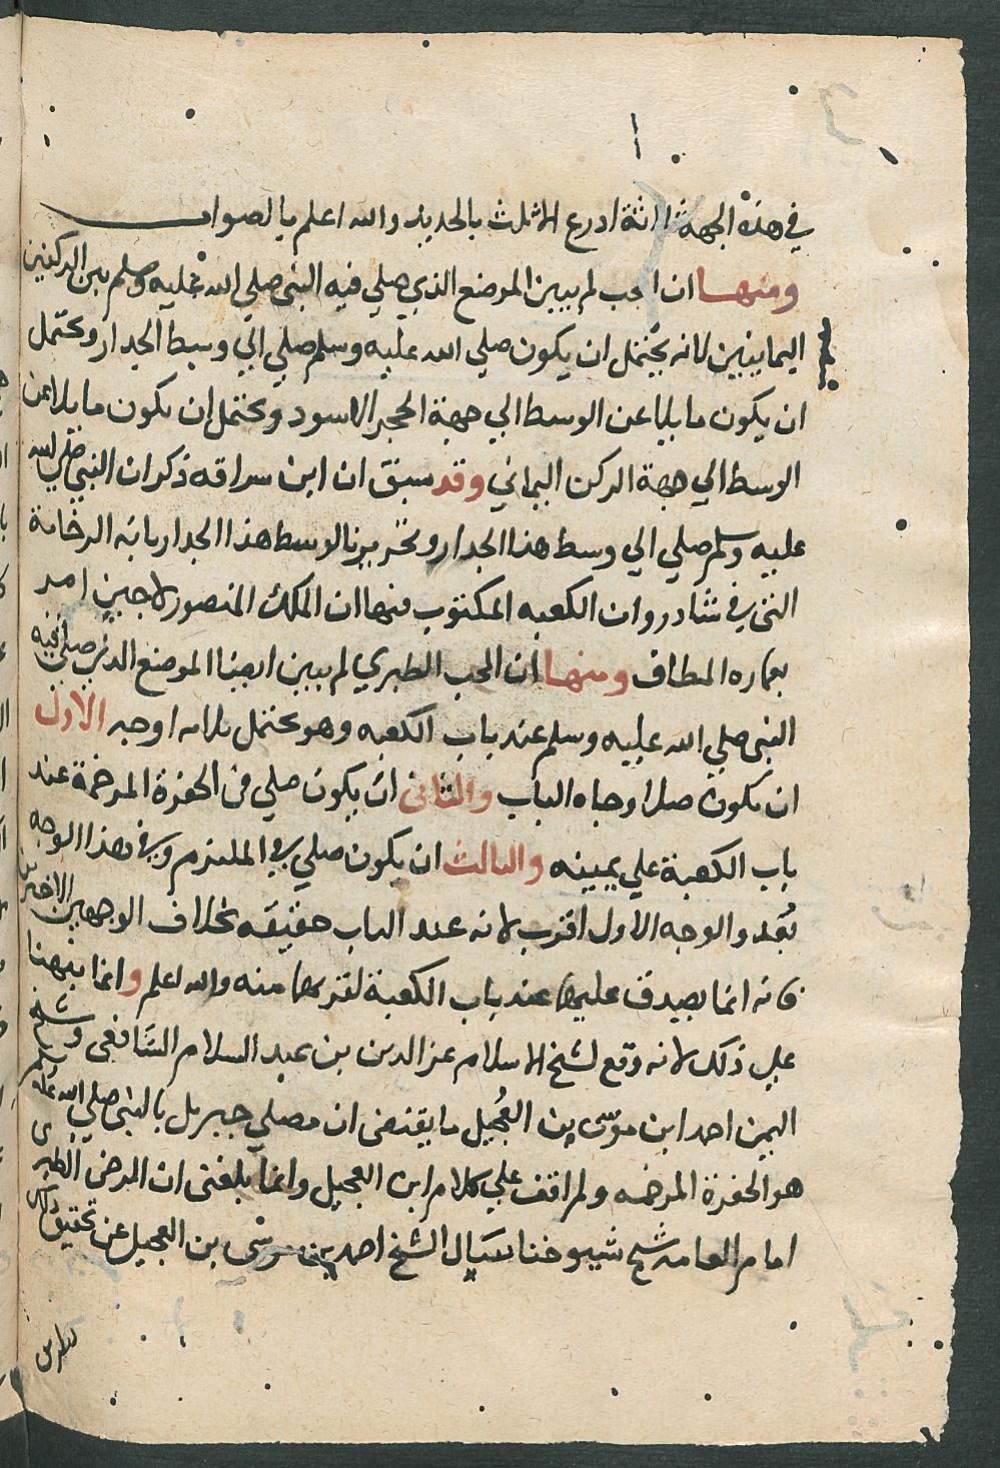 في هذه الجهة ثلاثة ادرع الا ثلث بالحديد والله اعلم بالصواب
ومنها ان المحب لم يبين الموضع الذي صلي فيه النبي صلي الله عليه وسلم بين الركنين
اليمانيين لانه يحتمل ان يكون صلي الله عليه وسلم صلي الي وسط الجدار ويحتمل
ان يكون مايلا عن الوسط الي جهة الحجر الاسود ويحتمل ان يكون مايلا عن
الوسط الي جهة الركن اليماني وقد سبق ان ابن سراقه ذكر ان النبي صلي الله
عليه وسلم صلي الي وسط هذا الجدار وتحريرنا لوسط هذا الجدار بانه الرخامة
التي في شادروان الكعبه المكتوب فيها ان الملك المنصور لاجين امر
بعماره المطاف ومنها ان المحب الطبري لم يبين ايضا الموضع الذي صلي فيه
النبي صلي الله عليه وسلم عند باب الكعبه وهو يحتمل ثلاثه اوجه الاول
ان يكون صلا وجاه الباب والثاني ان يكون صلي في الحفرة المرخمة عند
باب الكعبة علي يمينه والثالث ان يكون صلي في الملتزم وفي هذا الوجه
بُعد والوجه الاول اقرب لانه عند الباب حقيقه بخلاف الوجهين الاخرين
فانه انما يصدق عليهما عند باب الكعبة لقربهما منه والله اعلم وانما نبهنا
علي ذلك لانه وقع لشيخ الاسلام عز الدين بن عبد السلام الشافعي وشيخ
اليمن احمد ابن موسى بن العُجيل ما يقتضي ان مصلي جبريل بالنبي صلي الله عليه وسلم
هو الحفرة المرخمه ولم اقف علي كلام ابن العجيل وانما بلغني ان الرضي الطبري
امام المقام شيخ شيوخنا سال الشيخ احمد بن موسى بن العجيل عن تحقيق ذلك